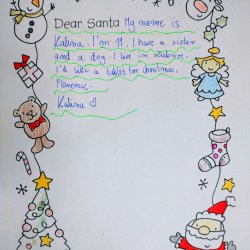 Dear Santa My name is
Kalina. I'm 11. I have a sister
and a dog. I live in Zabrze.
I'd like a tablet for Christmas.
Florence.
Kalina